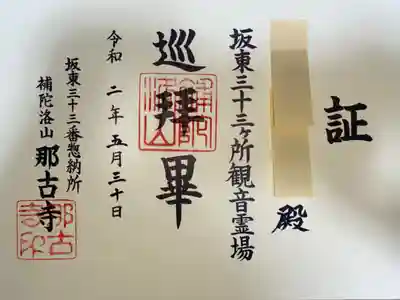 証
殿
坂東三十三ヶ所観音霊場
巡拝畢
令和二年五月三十日
坂東三十三番惣納所
補陀洛山那古寺
那古寺印